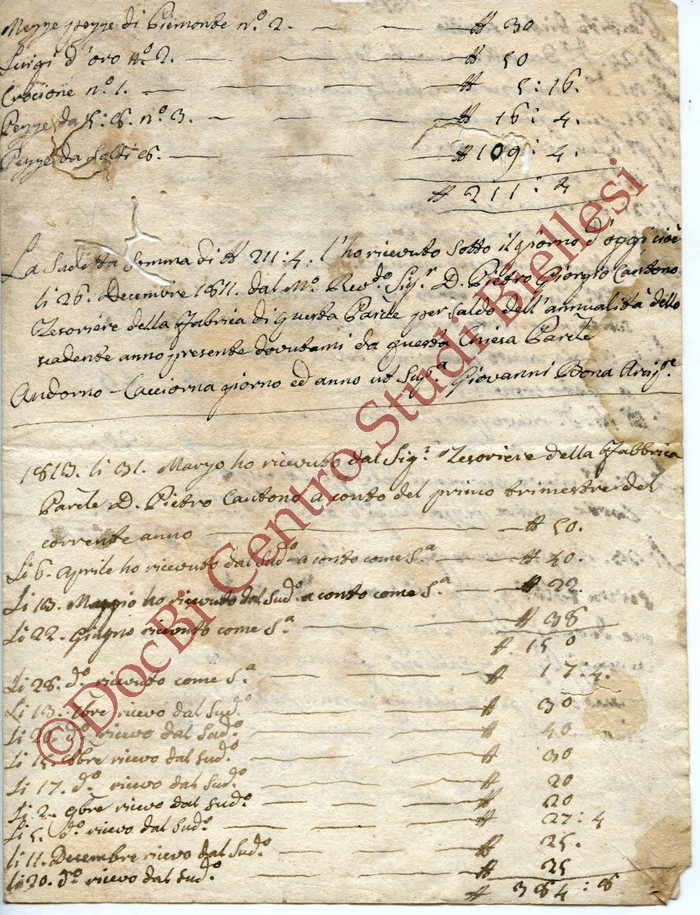 Mezze pezze di Piemonte n.º 2. — — — ₶ 30
Luigi d'oro n.º 2. — — — ₶ 50
Crocione n.º 1. — — — ₶ 5:16.
Pezze da 5:8. n.º 3. — — — ₶ 16:4.
Pezze da Soldi 8. — — — ₶ 109:4.
₶ 211:4
La Sudd.ta Somma di ₶ 211:4. l'ho ricevuto sotto il giorno d'oggi cioè
li 26. Decembre 1811. dal M.º Rev.do Sig.r D. Pietro Giorgio Cantono
Tesoriere della Fabrica di questa Parle per saldo dell'annualità dello
scadente anno presente dovutami da questa Chiesa Parle
Andorno-Cacciorna giorno ed anno ut Sup.a Giovanni Bona
1813. li 31. Marzo ho ricevuto dal Sig.r Tesoriere della Fabbrica
Parle D. Pietro Cantono a conto del primo trimestre del
corrente anno — — ₶ 50.
Li 6. Aprile ho ricevuto dal Sud.º a conto come S.a — ₶ 40.
Li 13. Maggio ho ricevuto dal Sud.º a conto come S.a — ₶ 22.
Li 22. Giugno ricevuto come S.a — — ₶ 38
₶ 150
Li 28. d.º ricevuto come S.a — — ₶ 17:4.
Li 13. 7bre ricevo dal Sud.º — — ₶ 30
Li 26. d.º ricevo dal Sud.º — — ₶ 40.
Li 15. 8bre ricevo dal Sud.º — — ₶ 30
Li 17. d.º ricevo dal Sud.º — — ₶ 20
Li 2. 9bre ricevo dal Sud.º — — ₶ 20
Li 5. d.º ricevo dal Sud.º — — ₶ 27:4
Li 11. Decembre ricevo dal Sud.º — — ₶ 25.
Li 20. d.º ricevo dal Sud.º — — ₶ 25
₶ 384:8
©DocBi Centro Studi Biellesi